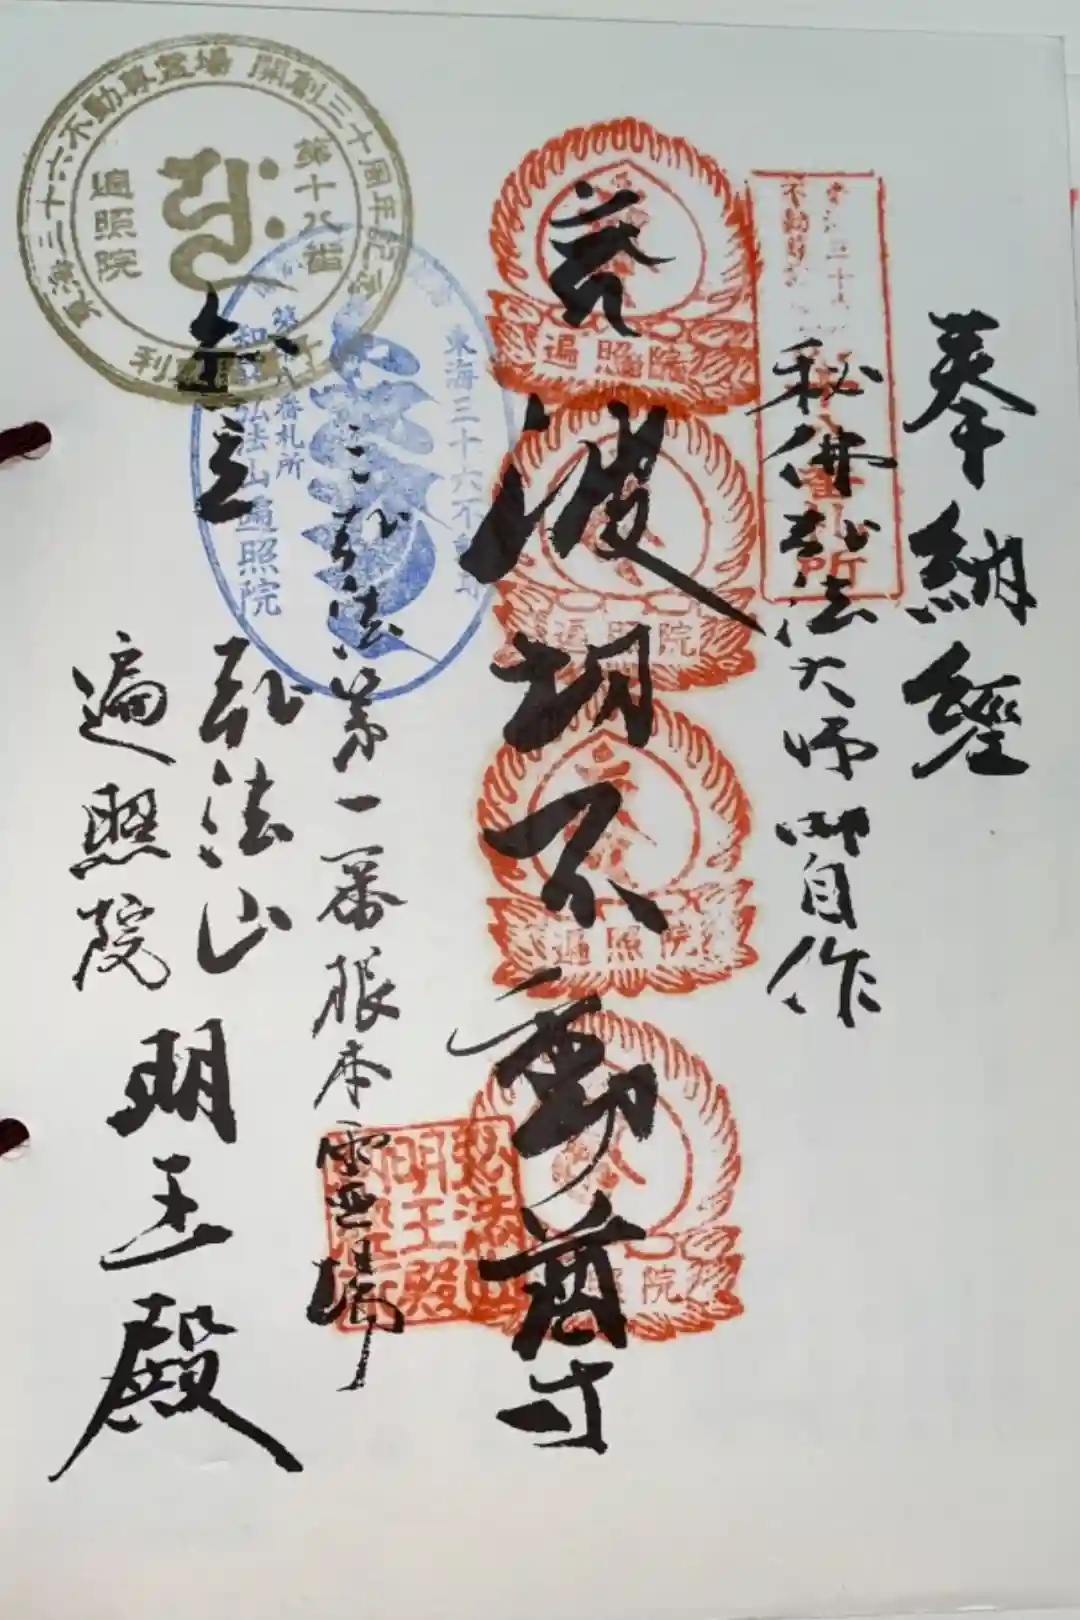 奉納經
秘佛弘法大師御自作
波切不動尊
三弘法第一番根本霊場
弘法山
遍照院
明王殿
東海三十六不動尊霊場 開創三十周年記念
第十八番
遍照院
東海三十六不動尊
第十八番札所
弘法山遍照院
遍照院
遍照院
遍照院
照院
弘法山
明王殿